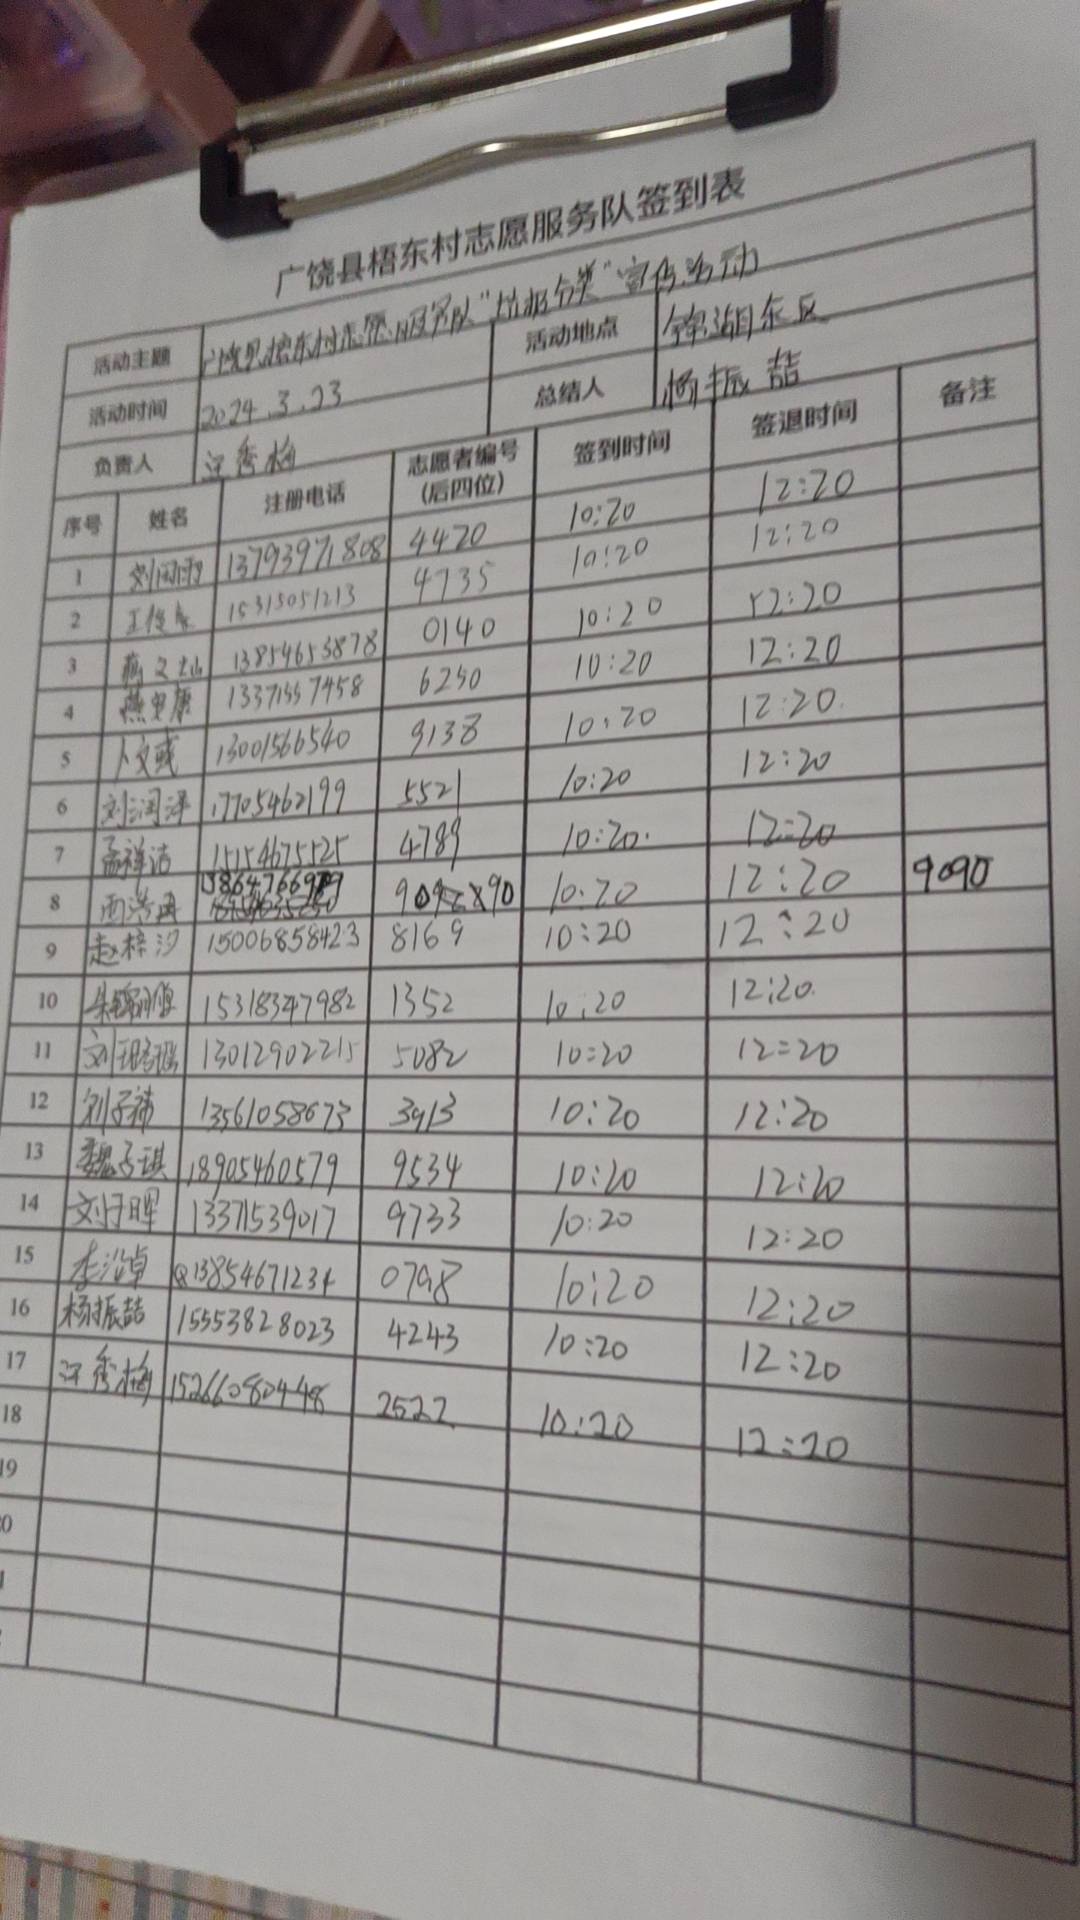 广饶县梧东村志愿服务队签到表
活动主题 广饶县梧东村志愿服务队“垃圾分类”宣传活动
活动时间 2024.3.23 活动地点 锦湖东区
负责人 汪秀梅 总结人 杨振喆
序号 姓名 注册电话 志愿者编号(后四位) 签到时间 签退时间 备注
1 刘润雨 13793971808 4420 10:20 12:20
2 15315051213 4735 10:20 12:20
3 13854653878 0140 10:20 12:20
4 燕 康 13371557458 6250 10:20 12:20
5 卜文彧 13001566540 9138 10:20 12:20
6 刘润泽 17705462199 5521 10:20 12:20
7 孟祥洁 15154675525 4789 10:20 12:20
8 10:20 12:20 9090
9 赵梓汐 15006858423 8169 10:20 12:20
10 15318347982 1352 10:20 12:20
11 刘 13012902215 5082 10:20 12:20
12 刘子祎 13561058673 3913 10:20 12:20
13 魏子琪 18905460579 9534 10:20 12:20
14 刘子晖 13371539017 9733 10:20 12:20
15 李 卓 13854671234 0798 10:20 12:20
16 杨振喆 15553828023 4243 10:20 12:20
17 汪秀梅 15266080448 2522 10:20 12:20
18
19